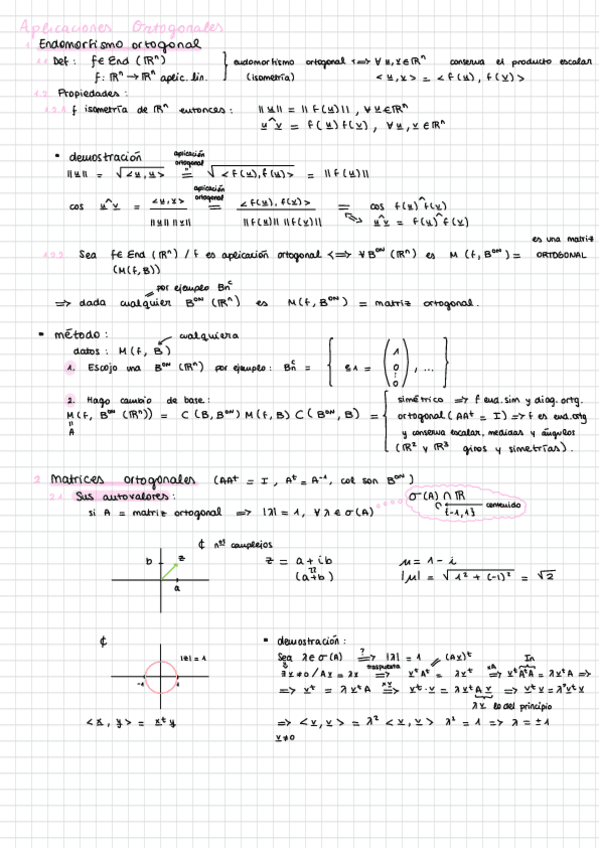 Aplicaciones Ortogonales
1. Endomorfismo ortogonal
1.1 Def: f ∈ End (ℝⁿ) } endomorfismo ortogonal <=> ∀ u, v ∈ ℝⁿ conserva el producto escalar
f: ℝⁿ → ℝⁿ aplic. lin. (isometría) <u, v> = <f(u), f(v)>
1.2 Propiedades:
1.2.1 f isometría de ℝⁿ entonces: ||u|| = ||f(u)||, ∀ u ∈ ℝⁿ
u^v = f(u) f(v), ∀ u, v ∈ ℝⁿ
• demostración
||u|| = √<u, u> = (aplicación ortogonal) √<f(u), f(u)> = ||f(u)||
cos u^v = <u, v> / ||u|| ||v|| = (aplicación ortogonal) <f(u), f(v)> / ||f(u)|| ||f(v)|| = cos f(u)^f(v)
u^v = f(u)^f(v)
1.2.2 Sea f ∈ End (ℝⁿ) / f es aplicación ortogonal <=> ∀ Bᴼᴺ (ℝⁿ) es M (f, Bᴼᴺ) = es una matriz ORTOGONAL
(M(f, B))
por ejemplo Bnᶜ
=> dada cualquier Bᴼᴺ (ℝⁿ) es M(f, Bᴼᴺ) = matriz ortogonal.
• método:
datos: M(f, B) cualquiera
1. Escojo una Bᴼᴺ (ℝⁿ) por ejemplo: Bnᶜ = { e1 = (1 0 : 0), ... }
2. Hago cambio de base:
M(f, Bᴼᴺ (ℝⁿ)) = C (B, Bᴼᴺ) M(f, B) C (Bᴼᴺ, B) = { simétrico => f end. sim y diag. ortg.
A
ortogonal (AAᵗ = I) => f es end. ortg
y conserva escalar, medidas y ángulos
(ℝ² y ℝ³ giros y simetrías).
2 Matrices ortogonales (AAᵗ = I, Aᵗ = A⁻¹, col son Bᴼᴺ)
2.1 Sus autovalores:
si A = matriz ortogonal => |λ| = 1, ∀ λ ∈ σ(A)
σ(A) ∩ ℝ
∩ contenido
{-1, 1}
₵ nºˢ complejos
b z
a
z = a + ib
(a+b)
μ = 1 - i
|μ| = √1² + (-1)² = √2
₵
|z| = 1
-1 1
<x, y> = xᵗy
• demostración:
Sea λ ∈ σ(A) =>? |λ| = 1 (Ax)ᵗ In
∃ v ≠ 0 / Av = λv => (traspuesta) vᵗAᵗ = λvᵗ =>(xA) vᵗAᵗA = λvᵗA =>
=> vᵗ = λvᵗA =>(xv) vᵗ·v = λvᵗAv => vᵗv = λ²vᵗv
λv lo del principio
=> <v, v> = λ² <v, v> λ² = 1 => λ = ±1
v ≠ 0